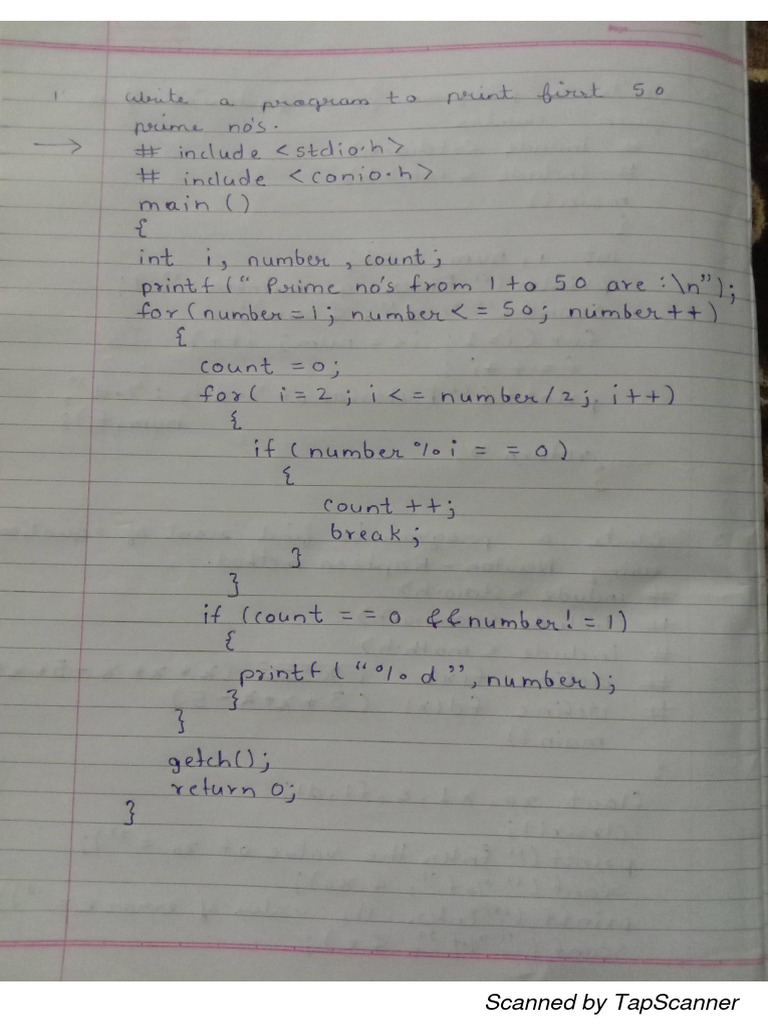 Page
1 Write a program to print first 50
prime no's.
→ # include <stdio.h>
# include <conio.h>
main ()
{
int i, number, count;
printf (“ Prime no's from 1 to 50 are :\n”);
for(number=1; number<=50; number++)
{
count =0;
for( i=2 ; i<= number/2; i++)
{
if (number%i = = 0)
{
count ++;
break;
}
}
if (count = = 0 &&number!=1)
{
printf (“%d”, number);
}
}
getch();
return 0;
}
Scanned by TapScanner